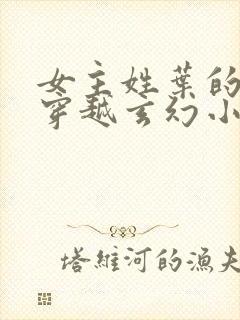 女主姓葉的
穿越玄幻小
塔維河的漁夫